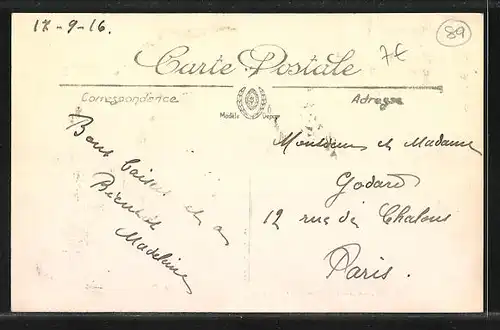 12-9-16.
89
7€
Carte Postale
Correspondance
Adresse
Modèle Déposé
Bons baisers et a
Bientôt
Madeleine
Monsieur et Madame
Godard
12 rue de Chalons
Paris.